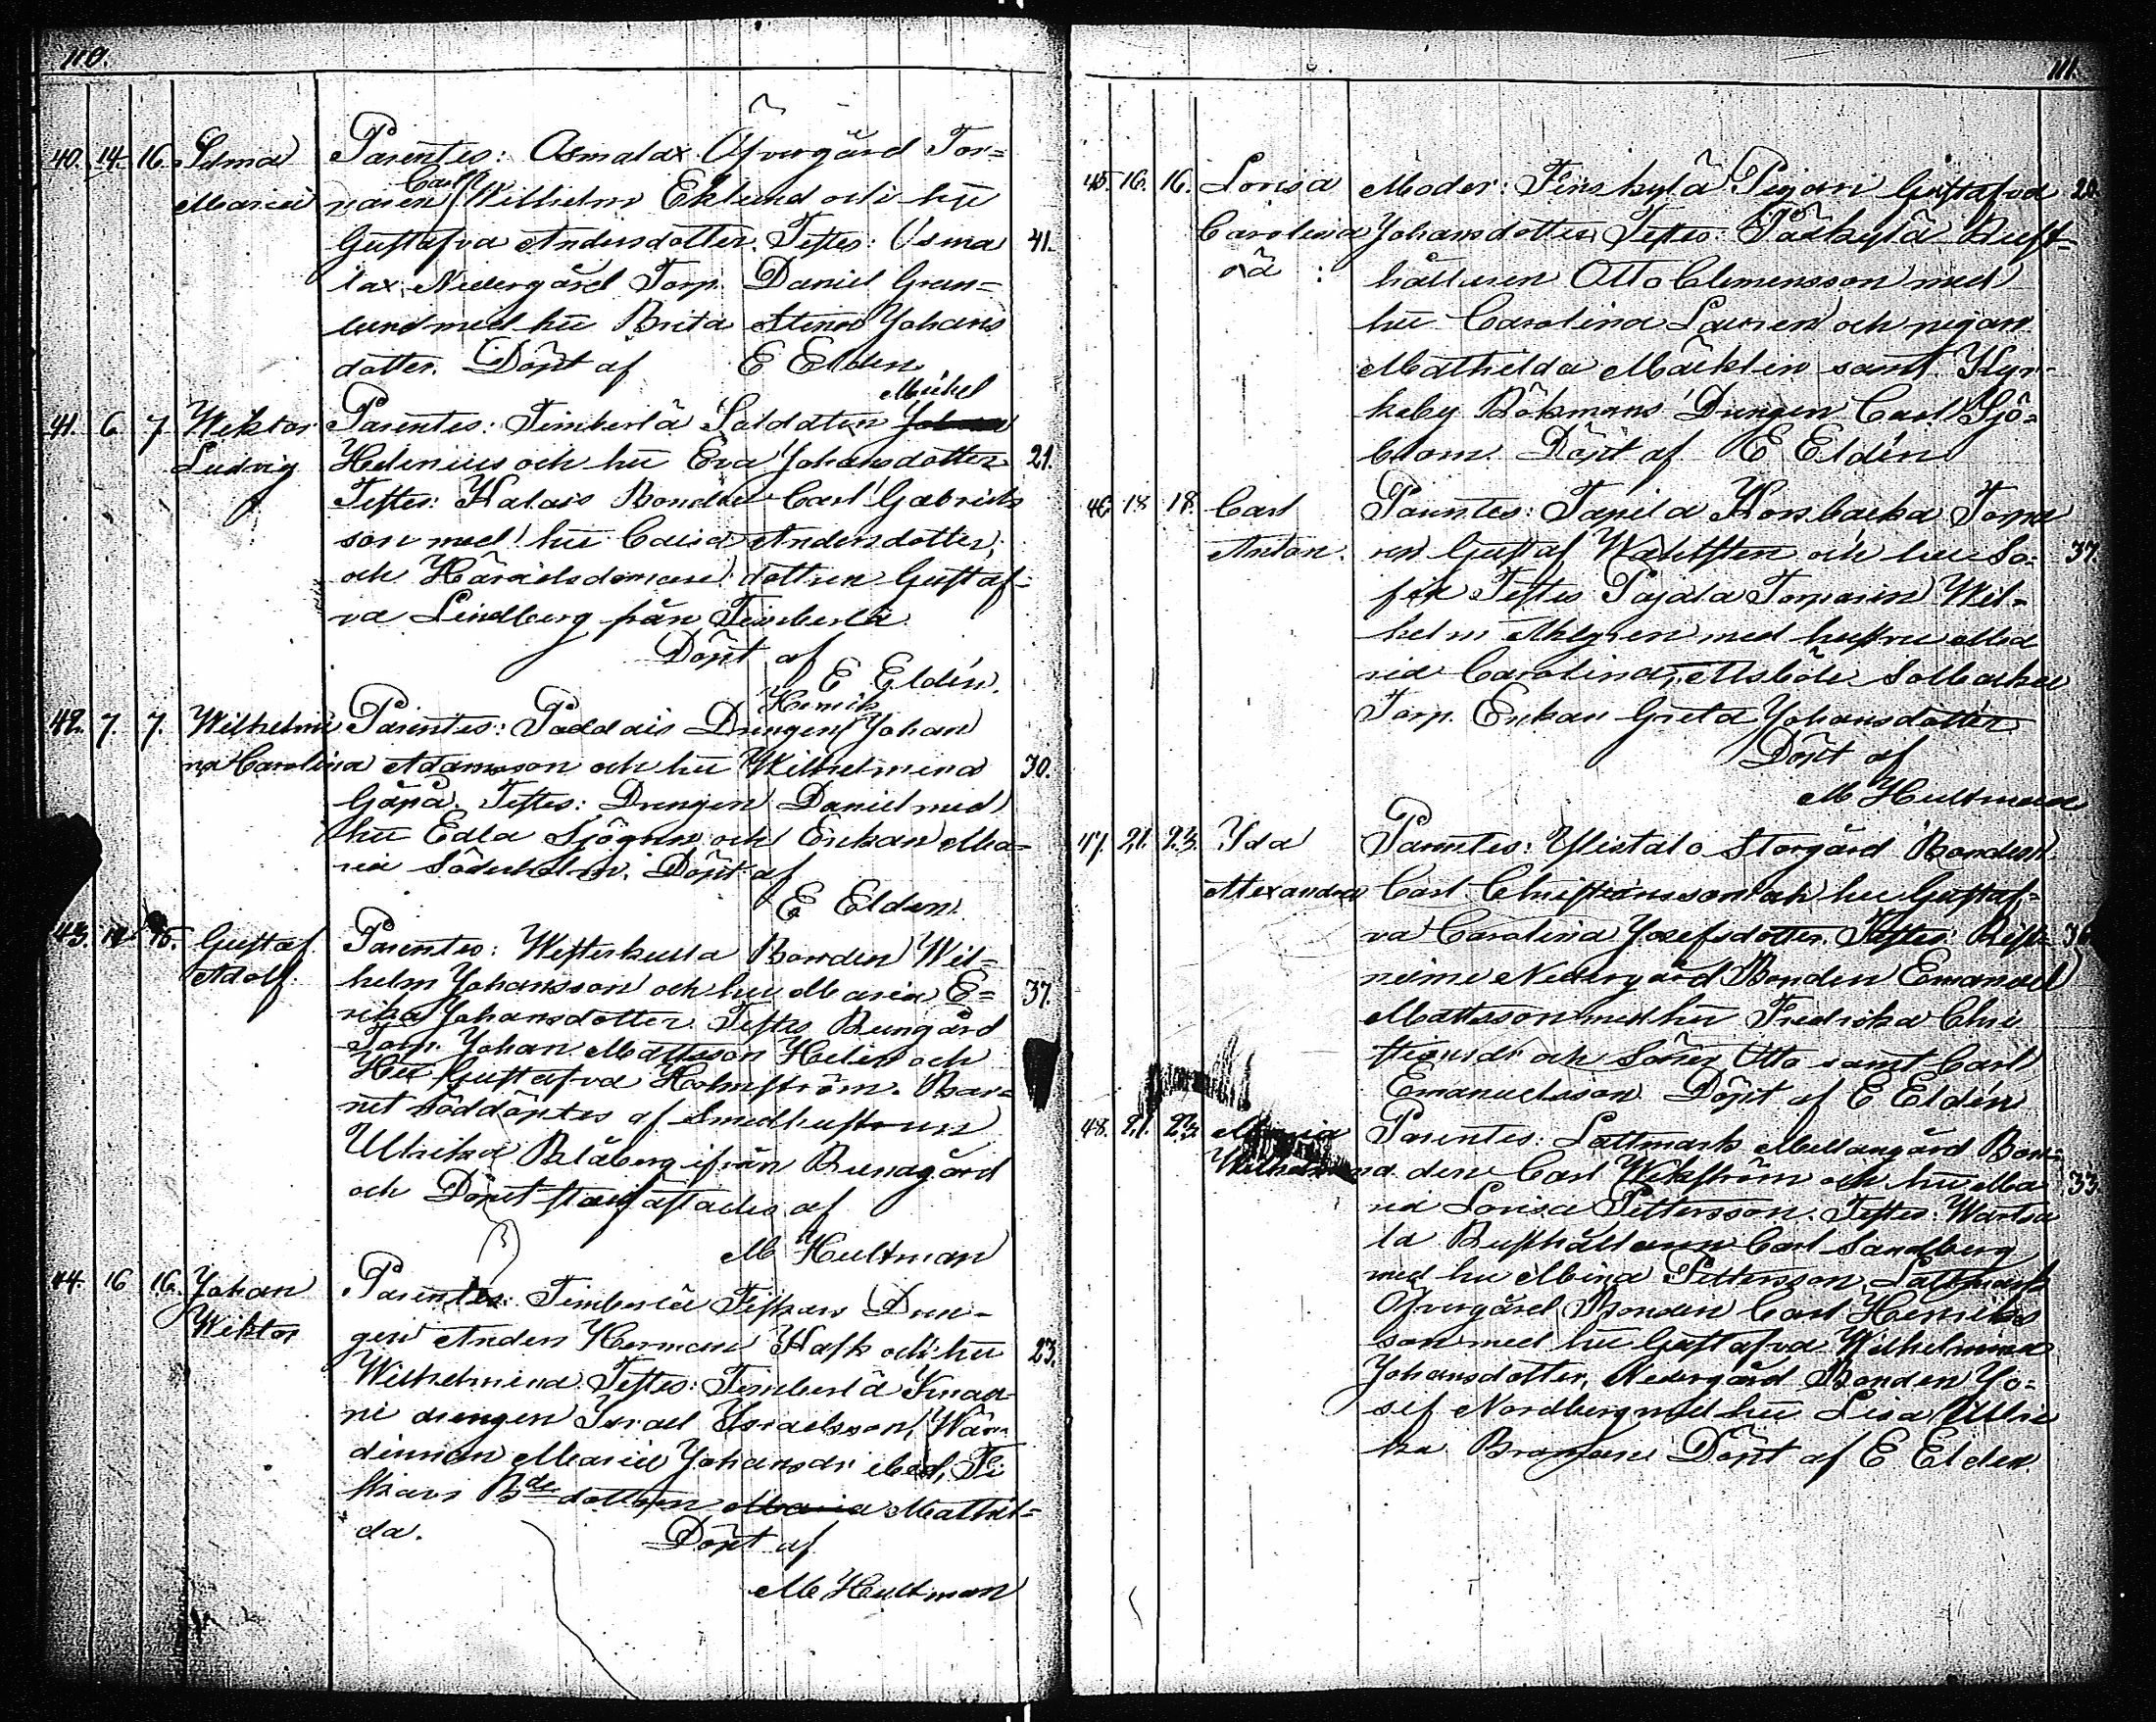 110.
40. 14. 16. Selma Parentes: Osmalax Öfvergård Tor=
Maria naren Carl Wilhelm Eklund och hu
Gustafva Andersdotter. Testes: Osma 41.
lax Nedergård Torp. Daniel Gran=
lund med hu Brita Stina Johans
dotter. Döpt af E Eldén
Michel
41. 6 7 Wiktor Parentes: Timberlä Soldaten Johan
Ludvig Helenius och hu Eva Johansdotter 21.
Testes: Halais Bonden Carl Gabriels
son med hu Caisa Andersdotter,
och Häradsdomare dottren Gustaf-
va Lindberg från Timberlä
Döpt af
E Eldén.
Henrik
42. 7. 7. Wilhelmi Parentes: Paddais Drengen Johan
na Carolina Adamsson och hu Wilhelmina 30.
Gäpä. Testes: Drengen Daniel med
hu Edla Sjögren och Enkan Ma=
ria Söderholm. Döpt af
E Eldén.
43. 14 15. Gustaf Parentes: Westerkulla Bonden Wil=
Adolf. helm Johansson och hu Maria E= 37.
rika Johansdotter. Testes Rungård
Torp. Johan Mattsson Helin och
Hu Gustafva Holmström. Bar=
net nöddöptes af Smedhustrun
Ulrika Blåberg ifrån Runagård
och Dopet stadfästades af
M Hultman
44. 16 16. Johan Parentes: Timberlä Fiskars Dren-
Wiktor gen Anders Herman Hask och hu 23.
Wilhelmina. Testes: Timberlä Knaa-
ni drengen Israel Israelsson, Wär=
dinnan Maria Johansdr ibed, Fi
skars Bde dottren Maria Mathil=
da. Döpt af
M Hultman
111.
45. 16. 16. Lovisa Moder: Finskylä Pigan Gustafva 20.
Carolina Johansdotter Testes: Pärkylä Rust=
oä : hållaren Otto Clemensson med
hu Carolina Lauren och pigan
Mathilda Mäcklin samt Kyr-
keby Bökmans Drengen Carl Sjö=
blom. Döpt af E Eldén
46 18 18. Carl Parentes: Tapila Korsbacka Torpa
Anton. ren Gustaf Wahlsten och hu So= 37.
fia Testes Pajala Torparen Wil=
helm Ahlgren med hustru Ma
ria Carolina, Alsböle Solbacka
Torp. Enkan Greta Johansdotter
Döpt af
M Hultman
47. 21. 23. Ida Parentes: Ylistalo Storgård Bonden
Alexandra Carl Christiansson och hu Gustaf=
va Carolina Josefsdotter. Testes: Rist= 36
neime Nedergård Bonden Emanuel
Mattsson med hu Fredrika Chri
stiansdr och Söner Otto samt Carl
Emanuelsson Döpt af E Eldén
48. 21. 23. Maria Parentes: Lattmark Mellangård Bon=
Wilhelmina den Carl Wikström och hu Ma 33.
ria Lovisa Pettersson. Testes: Wartsa
la Rusthållaren Carl Sandberg
med hu Mina Pettersson Lattmark
Öfvergård Bonden Carl Henriks
son med hu Gustafva Wilhelmina
Johansdotter, Nedergård Bonden Jo=
sef Nordberg med hu Lisa Ulri
ka Döpt af E Eldén.